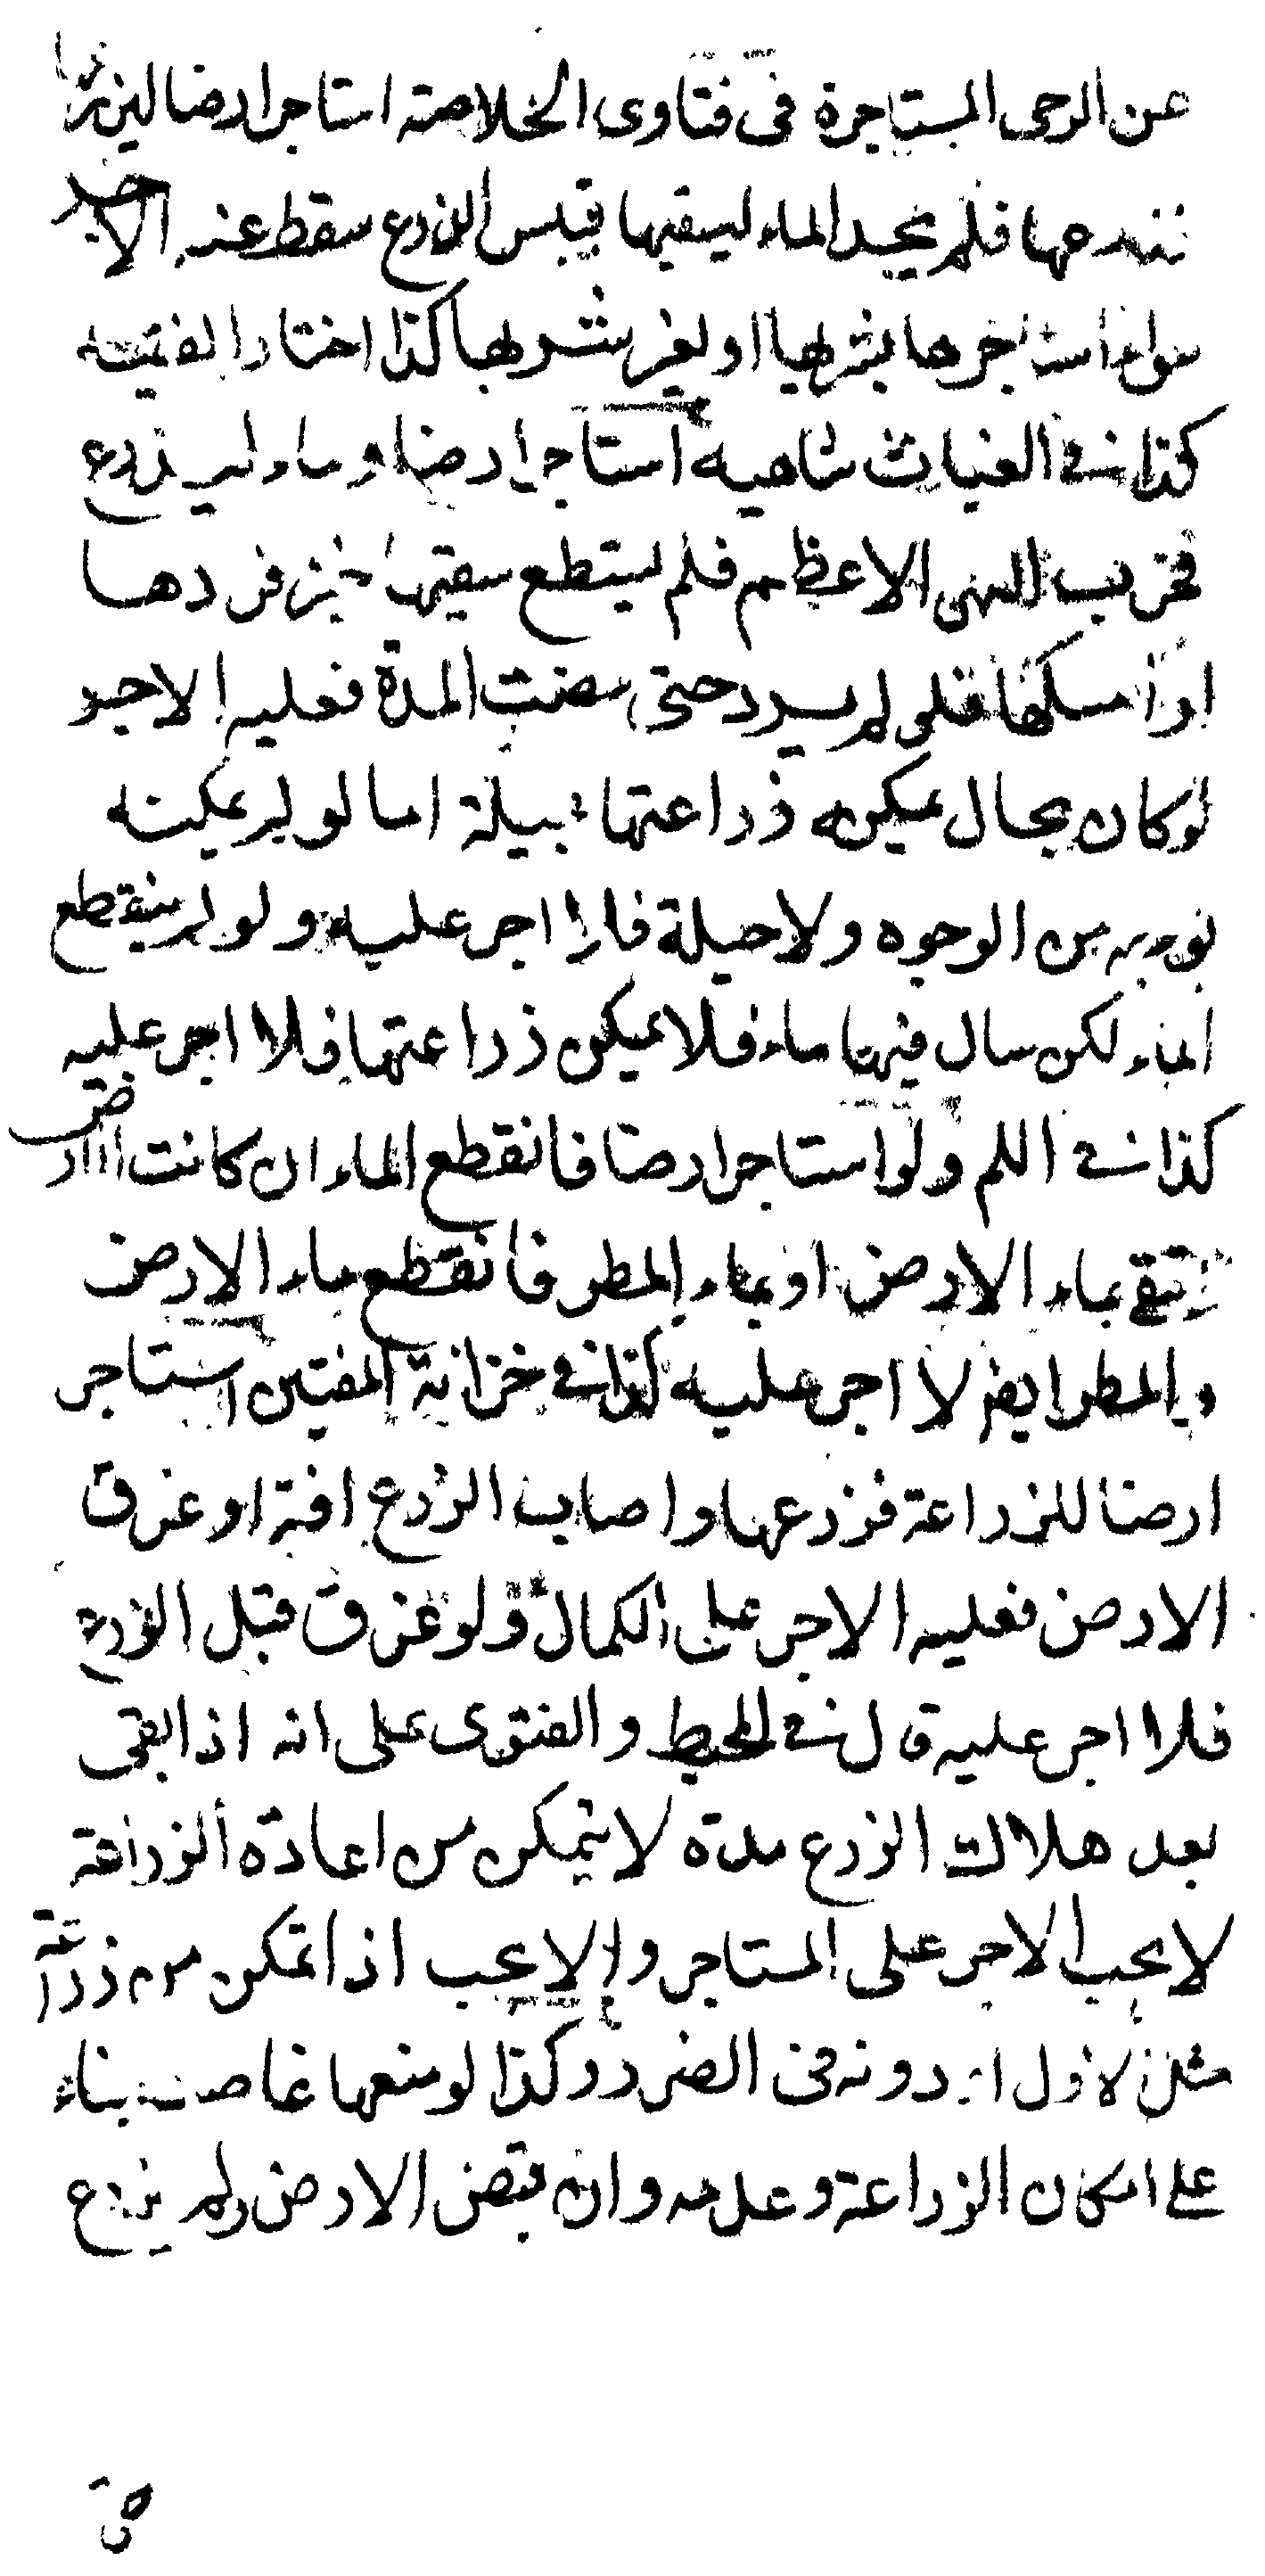 عن الرحى المستاجرة فى فتاوى الخلاصة استاجر ارضا ليزرعها
فزرعها فلم يجد الماء ليسقيها فيبس الزرع سقط عنه الاجر
سواء استاجرها بشربها او بغير شربها كذا اختار الفقيه
كذا فى الغياث شاهيه استاجر ارضا وماء ليزرع
فخرب النهر الاعظم فلم يستطع سقيها خير فى ردها
او امسكها فلو لم يرد حتى مضت المدة فعليه الاجر
لو كان بحال يمكنه زراعتها بحيلة اما لو لم يمكنه
بوجه من الوجوه ولا حيلة فلا اجر عليه ولو لم ينقطع
الماء لكن سال فيها ماء فلا يمكن زراعتها فلا اجر عليه
كذا فى اللم ولو استاجر ارضا فانقطع الماء ان كانت الارض
تسقى بماء الارض او بماء المطر فانقطع ماء الارض
والمطر ايضا لا اجر عليه كذا فى خزانة المفتين استاجر
ارضا للزراعة فزرعها واصاب الزرع افة او غرق
الارض فعليه الاجر على الكمال ولو غرق قبل الزرع
فلا اجر عليه قال فى المحيط والفتوى على انه اذا بقى
بعد هلاك الزرع مدة لا يتمكن من اعادة الزراعة
لا يجب الاجر على المستاجر والا يجب اذا تمكن من زراعة
مثل الاول او دونه فى الضرر وكذا لو منعها غاصب بناء
على امكان الزراعة وعدمه وان قبض الارض ولم يزرع